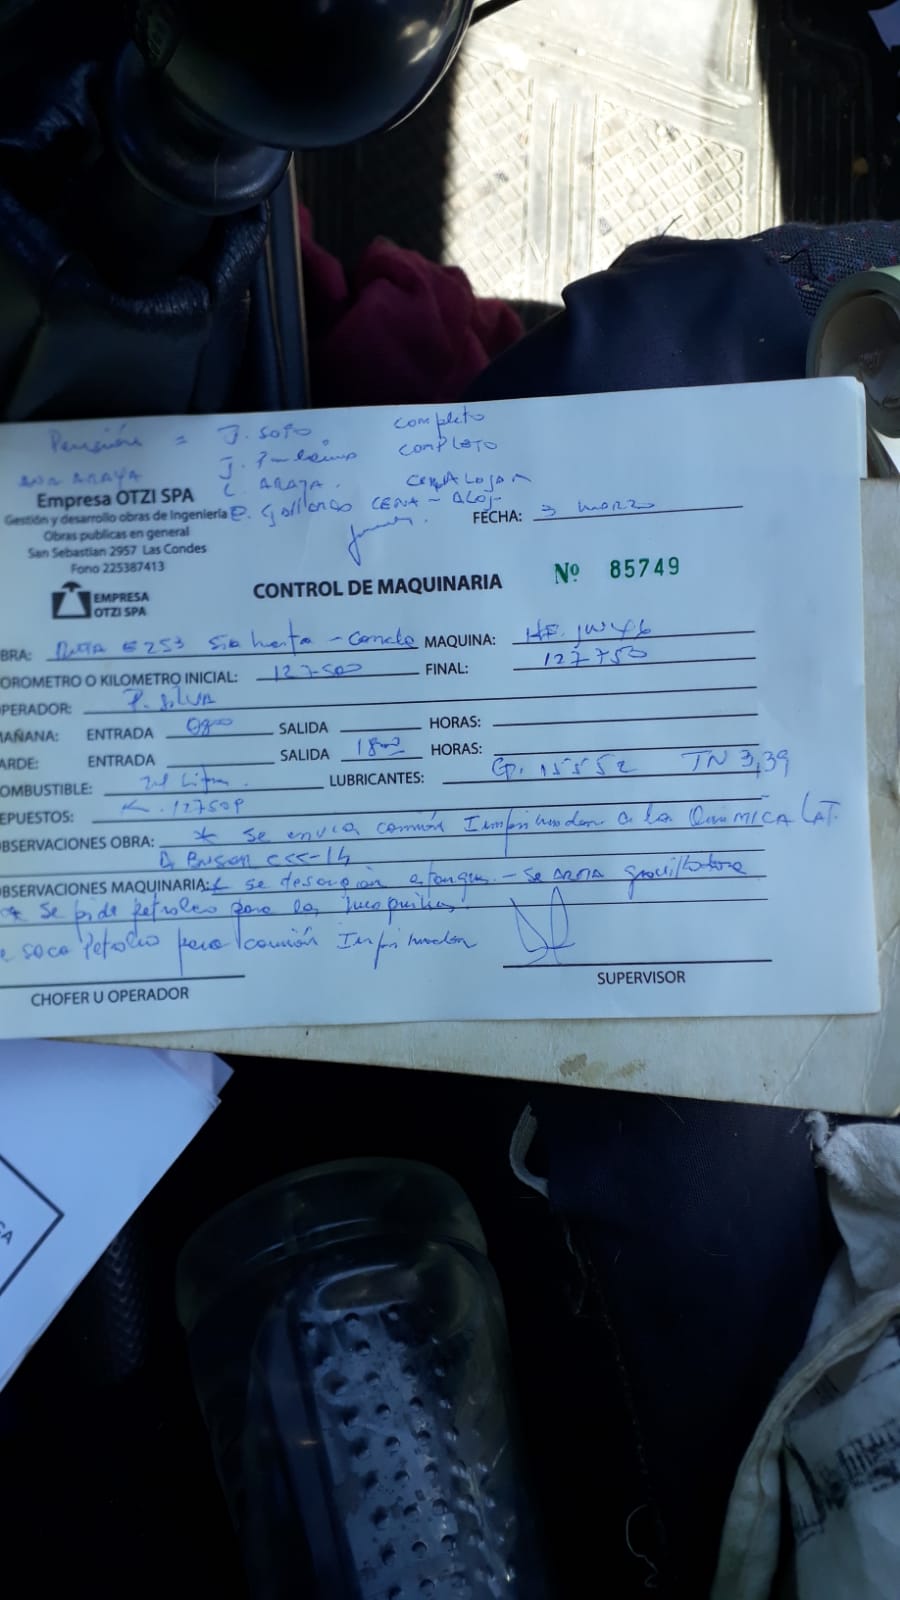 Pensión = J. Soto completo
J. completo
ANA ARAYA
L. ARAYA. CENA
Empresa OTZI SPA
E. Gallardo CENA - ALOJ
Gestión y desarrollo obras de Ingeniería
FECHA: 3 marzo
Obras publicas en general
San Sebastian 2957 Las Condes
Fono 225387413
EMPRESA
OTZI SPA
CONTROL DE MAQUINARIA
Nº 85749
BRA: RUTA E253 MAQUINA:
OROMETRO O KILOMETRO INICIAL: 127500 FINAL: 127750
PERADOR: P. SILVA
MAÑANA: ENTRADA 0800 SALIDA HORAS:
ARDE: ENTRADA SALIDA 1800 HORAS:
OMBUSTIBLE: LUBRICANTES: 15552 TN 3,39
EPUESTOS: K. 127509
OBSERVACIONES OBRA: * Se envia camión Imprimador a la QUIMICA LAT.
A Buscar CSS-1h
OBSERVACIONES MAQUINARIA: se descargan estanque. - Se ARMA gravilladora
* Se pide petroleo para las maquinas.
e saco Petroleo para camión Imprimador
CHOFER U OPERADOR
SUPERVISOR